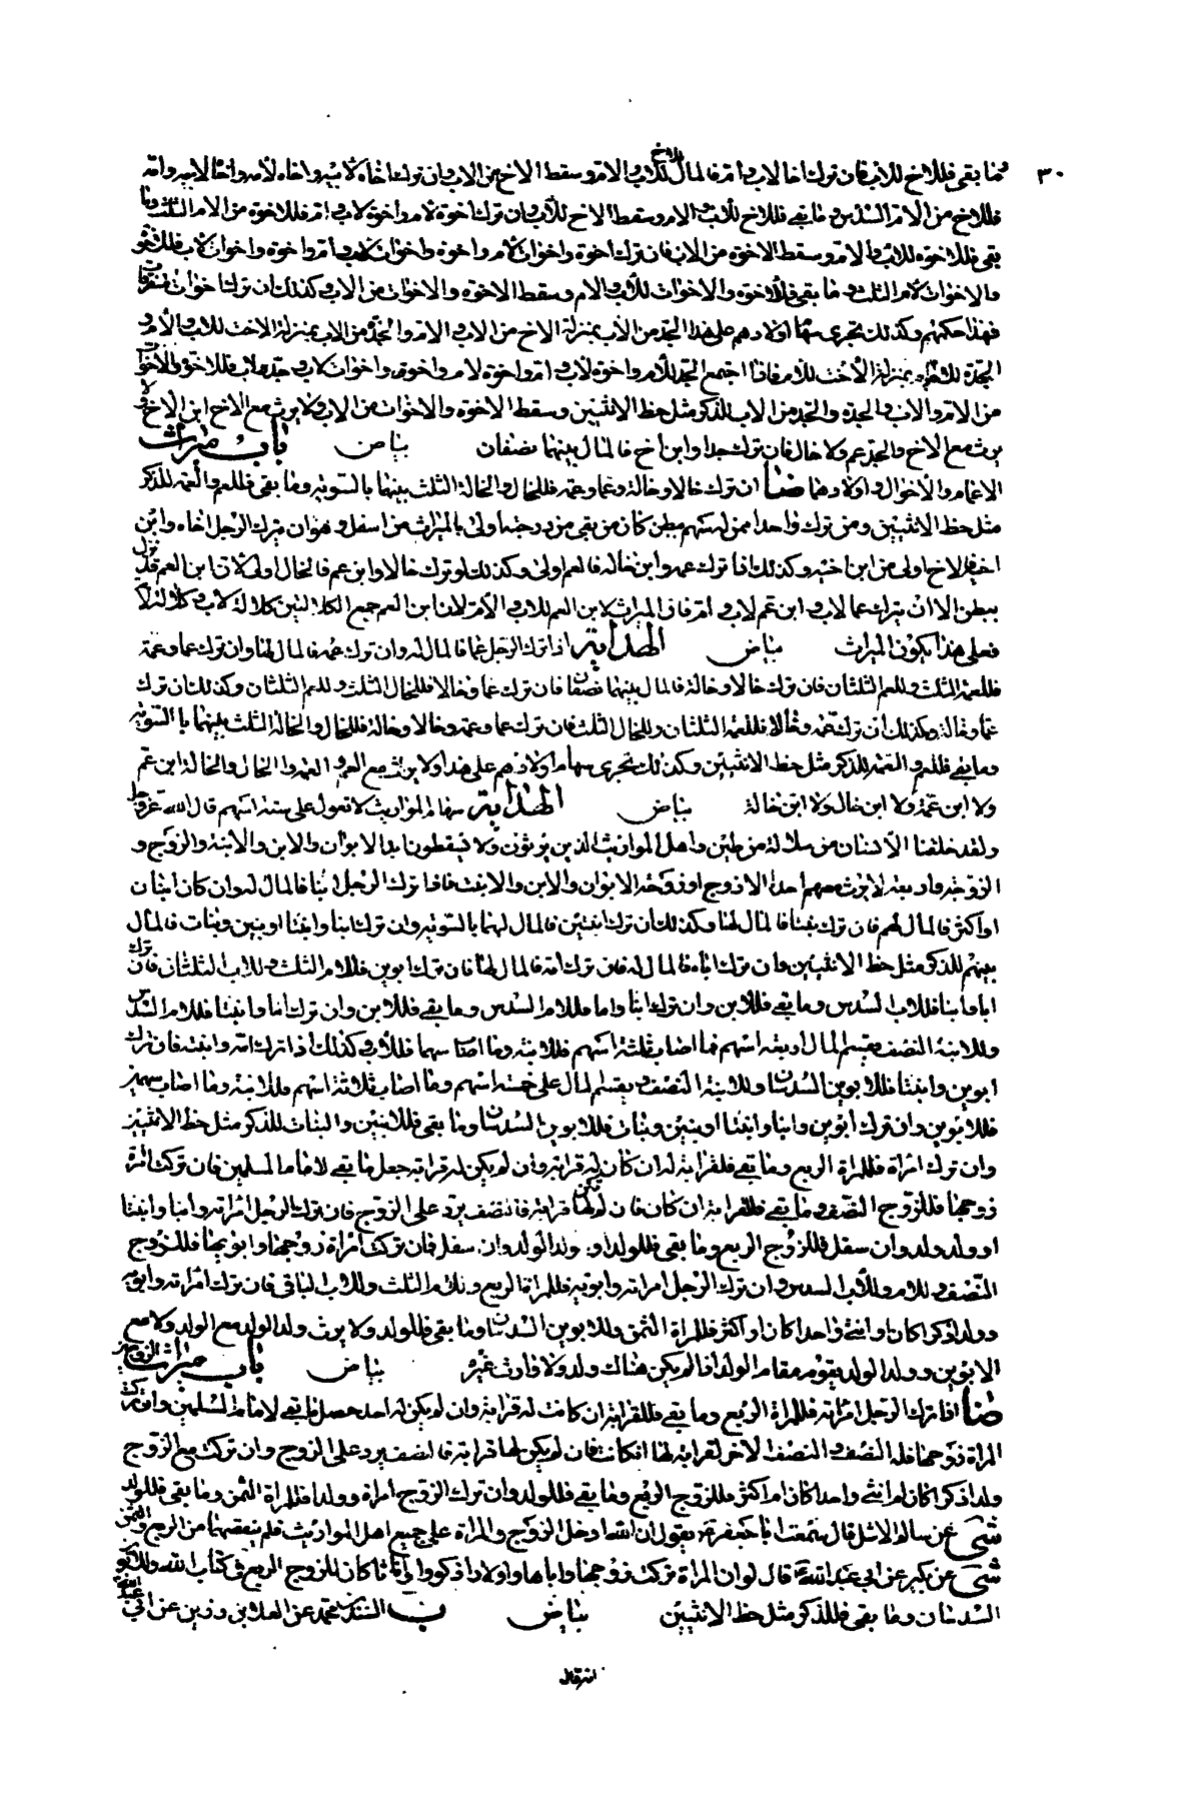 ٣٠
فما بقى فللاخ للاب فان ترك اخا لاب وام فالمال للاخ للاب والام وسقط الاخ من الاب وان ترك اخاه لابيه واخاه لامه واخا لابيه وامه
فللاخ من الام السدس وما بقى فللاخ للاب والام وسقط الاخ للاب وان ترك اخوة لام واخوة لاب وام فللاخوة من الام الثلث وما
بقى فللاخوة للاب والام وسقط الاخوة من الاب فان ترك اخوة واخوات لام واخوة واخوات لاب وام واخوة واخوات لاب فللاخوة
والاخوات لام الثلث وما بقى فللاخوة والاخوات للاب والام وسقط الاخوة والاخوات من الاب وكذلك ان ترك اخوات متفرقات
فهذا حكمهم وكذلك تجرى سهام اولادهم على هذا الجد من الاب بمنزلة الاخ من الاب والام والجد من الاب بمنزلة الاخت للاب والام و
الجدة للام بمنزلة الاخت للام فاذا اجتمع الجد للام واخوة لاب وام واخوة لام واخوة واخوات لاب وجد لاب فللاخوة والاخوات
من الام والاب والجدة والجد من الاب للذكر مثل حظ الانثيين وسقط الاخوة والاخوات من الاب ولا يرث مع الاخ ابن الاخ ولا
يرث مع الاخ والجد عم ولا خال فان ترك جدا وابن اخ فالمال بينهما نصفان بياض باب ميراث
الاعمام والاخوال واولادهما ضا ان ترك خالا وخالة وعما وعمة فللخال والخالة الثلث بينهما بالسوية وما بقى فللعم والعمة للذكر
مثل حظ الانثيين ومن ترك واحدا ممن له سهم بطن كان من بقى من درجته اولى بالميراث من اسفل وهو ان يترك الرجل اخاه وابن
اخيه فالاخ اولى من ابن اخيه وكذلك اذا ترك عمه وابن خاله فالعم اولى وكذلك لو ترك خالا وابن عم فالخال اولى لان ابن العم قد نزل
ببطن الا ان يترك عما لاب وابن عم لاب وام فان الميراث لابن العم للاب والام لان ابن العم جمع الكلالتين كلالة لاب وكلالة لام
فعلى هذا يكون الميراث بياض الهداية اذا ترك الرجل عما فالمال له وان ترك عمة فالمال لها وان ترك عما وعمة
فللعمة الثلث وللعم الثلثان فان ترك خالا وخالة فالمال بينهما نصفان فان ترك عما وخالا فللخال الثلث وللعم الثلثان وكذلك ان ترك
عما وخالة وكذلك ان ترك عمة وخالا فللعمة الثلثان وللخال الثلث فان ترك عما وعمة وخالا وخالة فللخال والخالة الثلث بينهما بالسوية
وما بقى فللعم والعمة للذكر مثل حظ الانثيين وكذلك تجرى سهام اولادهم على هذا ولا يرث مع العم والعمة والخال والخالة ابن عم
ولا ابن عمة ولا ابن خال ولا ابن خالة بياض الهداية سهام المواريث لا تعول على ستة اسهم قال الله عز وجل
ولقد خلقنا الانسان من سلالة من طين واهل المواريث الذين يرثون ولا يسقطون ابدا الابوان والابن والابنة والزوج و
الزوجة واربعة لا يرث معهم احد الا زوج او زوجة الابوان والابن والابنة فاذا ترك الرجل ابنا فالمال له وان كان ابنان
او اكثر فالمال لهم فان ترك بنتا فالمال لها وكذلك ان ترك ابنتين فالمال لهما بالسوية وان ترك ابنا وابنة او بنين وبنات فالمال
بينهم للذكر مثل حظ الانثيين وان ترك اباه فالمال له فان ترك امه فالمال لها فان ترك ابوين فللام الثلث وللاب الثلثان فان ترك
ابا وابنا فللاب السدس وما بقى فللابن وان ترك ابنا واما فللام السدس وما بقى فللابن وان ترك اما وابنة فللام السدس
وللابنة النصف يقسم المال اربعة اسهم فما اصاب ثلثة اسهم فللابنة وما اصاب سهما فللأب وكذلك اذا ترك امه وابنته فان ترك
ابوين وابنتا فللابوين السدسان وللابنة النصف يقسم المال على خمسة اسهم وما اصاب ثلاثة اسهم فللابنة وما اصاب سهمين
فللابوين وان ترك ابوين وابنا وابنتا او بنين وبنات فللابوين السدسان وما بقى فللبنين والبنات للذكر مثل حظ الانثيين
وان ترك امراة فللمراة الربع وما بقى فلقرابة له ان كان له قرابة وان لم يكن له قرابة جعل ما بقى لامام المسلمين فان تركت امراة
زوجها فللزوج النصف وما بقى فللقرابة ان كان فان لم يكن لها قرابة فالنصف يرد على الزوج فان ترك الرجل امراته وابنا وابنتا
او ولد ولد وان سفل فللزوج الربع وما بقى فللولد او ولد الولد وان سفل فان تركت امراة زوجها وابويها فللزوج
النصف وللام وللاب السدس وان ترك الرجل امراته وابويه فللمراة الربع وللام الثلث وللاب الباقى فان ترك امراته وابويه
وولدا ذكرا كان او انثى واحدا كان او اكثر فللمراة الثمن وللابوين السدسان وما بقى فللولد ولا يرث ولد الولد مع الولد ولا مع
الابوين وولد الولد يقوم مقام الولد اذا لم يكن هناك ولد ولا وارث غيره بياض باب ميراث الزوجين
ضا اذا ترك الرجل امراته فللمراة الربع وما بقى فللقرابة ان كانت له قرابة وان لم يكن له احد حصل ما بقى لامام المسلمين وان تركت
المراة زوجها فله النصف والنصف الاخر لقرابة لها ان كانت فان لم يكن لها قرابة فالنصف يرد على الزوج وان تركت مع الزوج
ولدا ذكرا كان ام انثى واحدا كان ام اكثر فللزوج الربع وما بقى فللولد وان ترك الزوج امراة وولدا فللمراة الثمن وما بقى فللولد
شى عن سالم الاشل قال سمعت ابا جعفر ع يقول ان الله ادخل الزوج والمراة على جميع اهل المواريث فلم ينقصهما من الربع والثمن
شى عن بكير عن ابى عبد الله ع قال لو ان المراة تركت زوجها واباها واولادا ذكورا واناثا كان للزوج الربع فى كتاب الله وللابوين
السدسان وما بقى فللذكر مثل حظ الانثيين بياض يب السندى بن محمد عن العلا بن رزين عن ابى عبد الله
انه قال